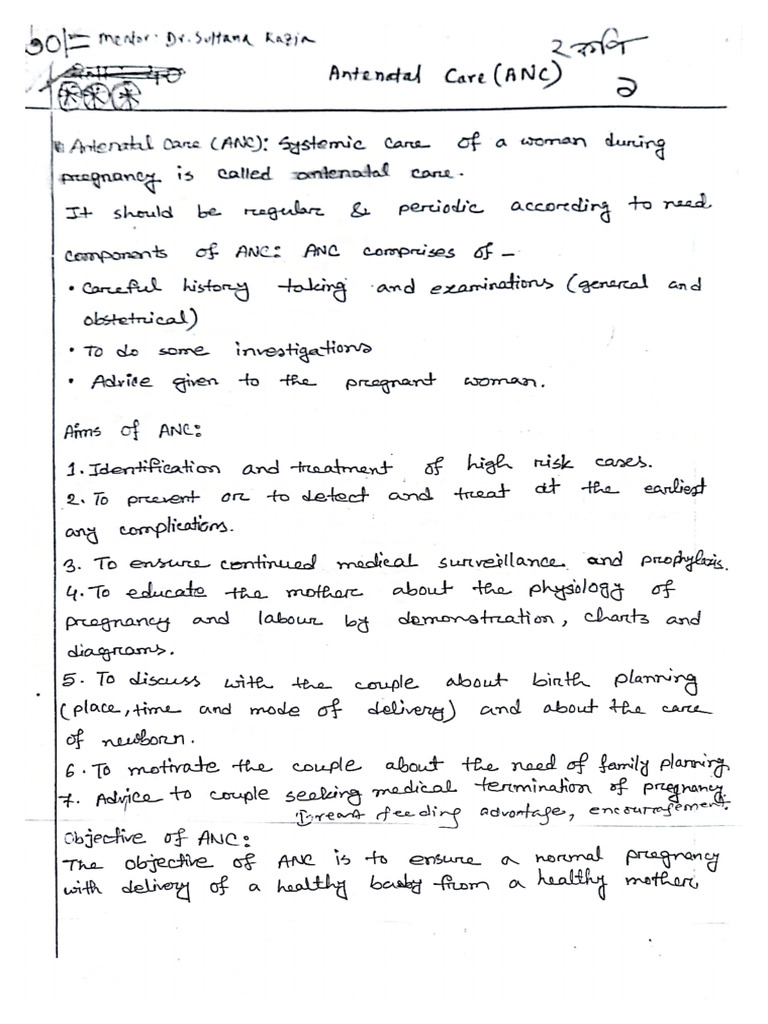 ৩০/= Mentor. Dr. Sultana Razia
২ কপি
Antenatal Care (ANC)
Antenatal Care (ANC): Systemic care of a woman during
pregnancy is called antenatal care.
It should be regular & periodic according to need
Components of ANC: ANC comprises of –
• Careful history taking and examinations (general and
obstetrical)
• To do some investigations
• Advice given to the pregnant woman.
Aims of ANC:
1. Identification and treatment of high risk cases.
2. To prevent or to detect and treat at the earliest
any complications.
3. To ensure continued medical surveillance and prophylaxis.
4. To educate the mother about the physiology of
pregnancy and labour by demonstration, charts and
diagrams.
5. To discuss with the couple about birth planning
(place, time and mode of delivery) and about the care
of newborn.
6. To motivate the couple about the need of family planning
7. Advice to couple seeking medical termination of pregnancy.
Breast feeding advantage, encouragement.
Objective of ANC:
The objective of ANC is to ensure a normal pregnancy
with delivery of a healthy baby from a healthy mother.